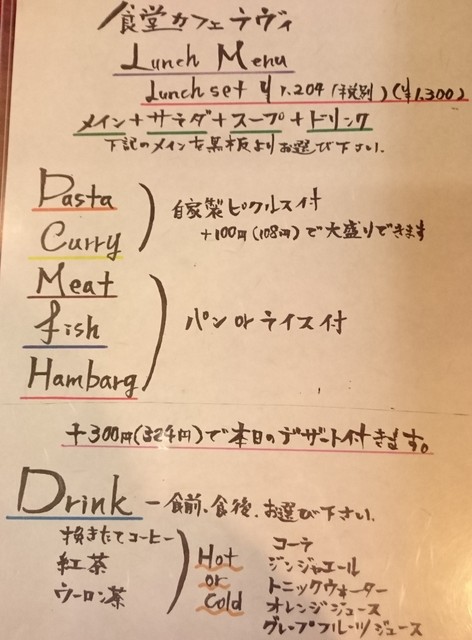 食堂カフェラヴィ
Lunch Menu
Lunch set ¥1,204(税別)(¥1,300)
メイン+サラダ+スープ+ドリンク
下記のメインを黒板よりお選び下さい.
Pasta
Curry
自家製ピクルス付
+100円(108円)で大盛りできます
Meat
fish
Hambarg
パン or ライス付
+300円(324円)で本日のデザート付きます。
Drink ー食前、食後、お選び下さい.
挽きたてコーヒー
紅茶
ウーロン茶
Hot
or
Cold
コーラ
ジンジャエール
トニックウォーター
オレンジジュース
グレープフルーツジュース